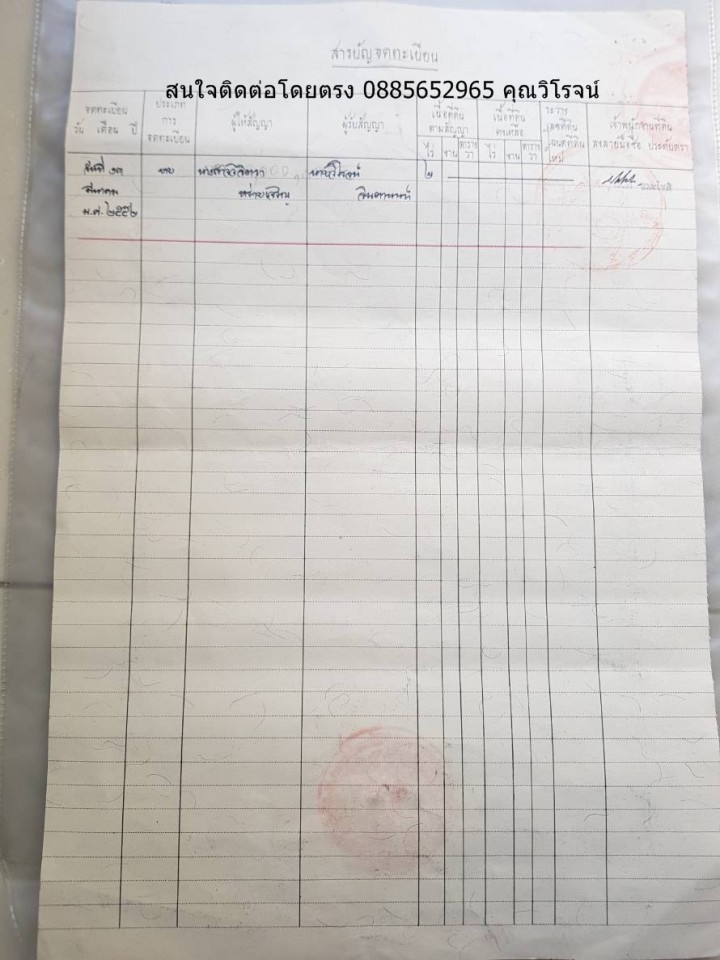 สารบัญจดทะเบียน
สนใจติดต่อโดยตรง 0885652965 คุณวิโรจน์
จดทะเบียน
วัน เดือน ปี
ประเภท
การ
จดทะเบียน
ผู้ให้สัญญา
ผู้รับสัญญา
เนื้อที่ดิน
ตามสัญญา
ไร่ งาน ตาราง
วา
เนื้อที่ดิน
คงเหลือ
ไร่ งาน ตาราง
วา
ระวาง
เลขที่ดิน
โฉนดที่ดิน
ใหม่
เจ้าพนักงานที่ดิน
ลงลายมือชื่อ ประทับตรา
วันที่ ๑๓ ขาย นางสาว นายวิโรจน์ ๒
มีนาคม จินดา
พ.ศ. ๒๕๕๒